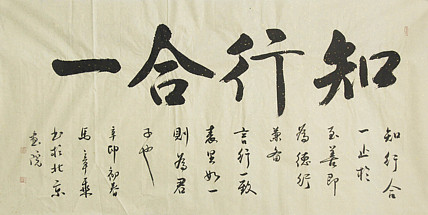 知行合一
知行合
一止於
至善即
為德行
兼備
言行一致
表里如一
則為君
子也
辛卯初春
馬章乘
書於北京
畫院